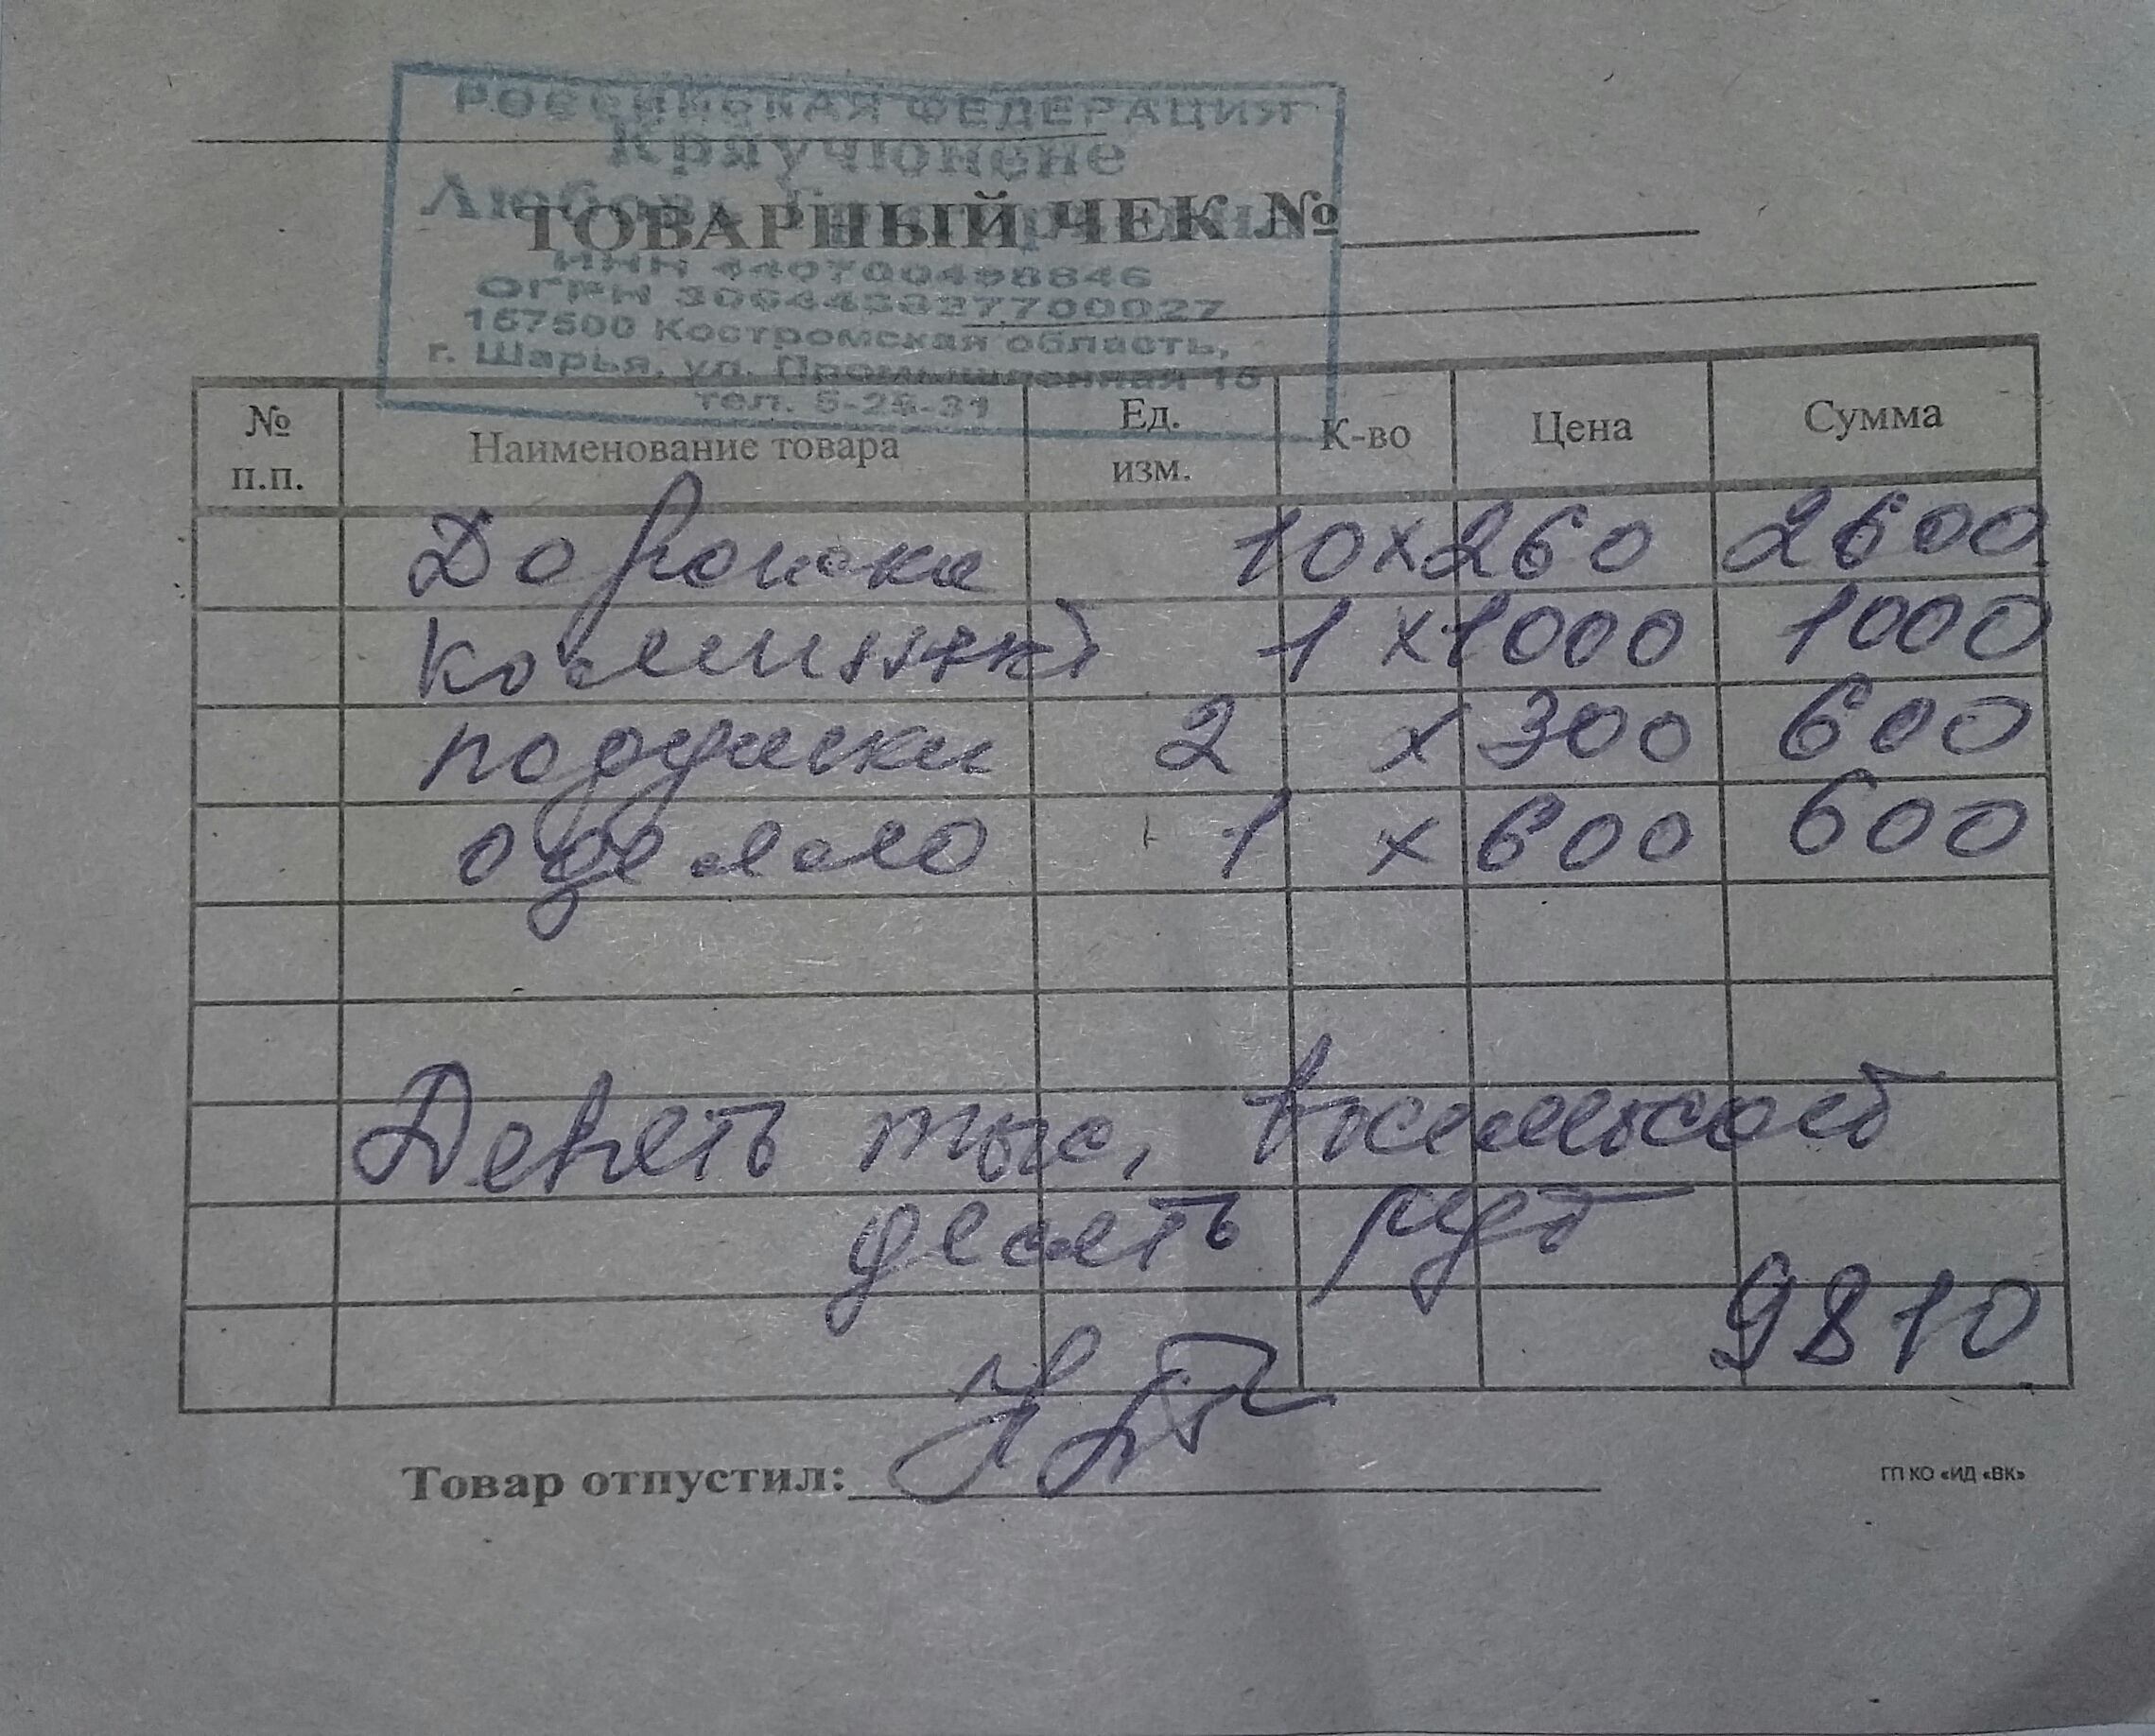 РОССИЙСКАЯ ФЕДЕРАЦИЯ
Краучюнене
Любовь
ТОВАРНЫЙ ЧЕК №
ИНН 440700498846
ОГРН 306443827700027
157500 Костромская область,
г. Шарья, ул. Промышленная 15
тел. 5-25-31
№ п.п. Наименование товара Ед. изм. К-во Цена Сумма
Дорожка 10 x 260 2600
1 x 1000 1000
подушки 2 x 300 600
одеяло 1 x 600 600
Девять тыс, восемьсот
десять руб
9810
Товар отпустил:
ГП КО «ИД «ВК»